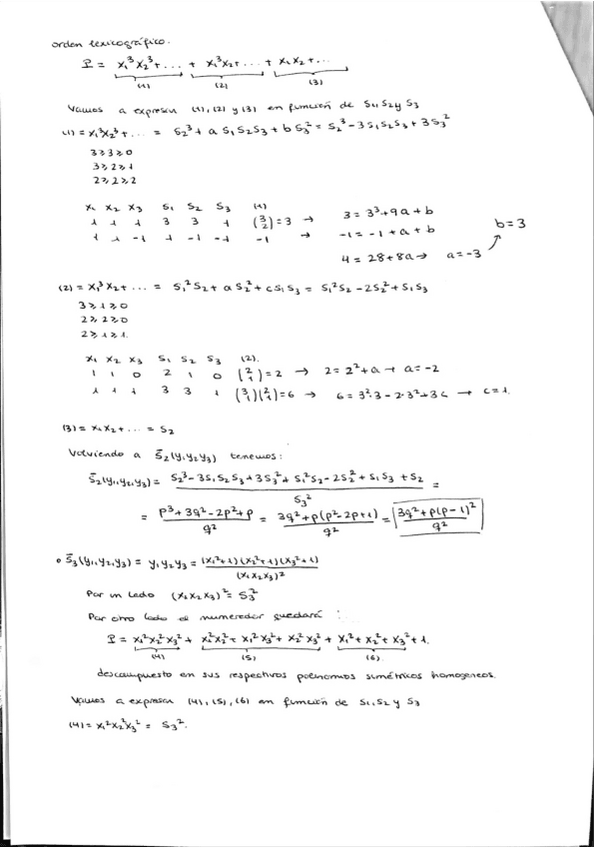 orden lexicográfico.
P = x₁³x₂³+... + x₁³x₂+... + x₁x₂+...
(1) (2) (3)
Vamos a expresar (1), (2) y (3) en función de S₁, S₂ y S₃
(1) = x₁³x₂³+... = S₂³ + a S₁S₂S₃ + b S₃² = S₂³ - 3S₁S₂S₃ + 3S₃²
3≥3≥0
3≥2≥1
2≥2≥2
x₁ x₂ x₃ S₁ S₂ S₃ (1)
1 1 1 3 3 1 (3/2)=3 → 3 = 3³+9a+b
1 1 -1 1 -1 -1 -1 → -1 = -1+a+b
b=3
4 = 28+8a → a=-3
(2) = x₁³x₂+... = S₁²S₂ + a S₂² + c S₁S₃ = S₁²S₂ - 2S₂² + S₁S₃
3≥1≥0
2≥2≥0
2≥1≥1.
x₁ x₂ x₃ S₁ S₂ S₃ (2).
1 1 0 2 1 0 (2/1)=2 → 2=2²+a → a=-2
1 1 1 3 3 1 (3/1)(2/1)=6 → 6=3²·3-2·3²+3c → c=1.
(3) = x₁x₂+... = S₂
Volviendo a S̄₂(y₁,y₂,y₃) tenemos:
S̄₂(y₁,y₂,y₃) = (S₂³-3S₁S₂S₃+3S₃²+S₁²S₂-2S₂²+S₁S₃+S₂)/S₃² =
= (p³+3q²-2p²+p)/q² = (3q²+p(p²-2p+1))/q² = (3q²+p(p-1)²)/q²
o S̄₃(y₁,y₂,y₃) = y₁y₂y₃ = (x₁²+1)(x₂²+1)(x₃²+1)/(x₁x₂x₃)²
Por un lado (x₁x₂x₃)² = S₃²
Por otro lado el numerador quedará :
P = x₁²x₂²x₃² + x₁²x₂²+x₁²x₃²+x₂²x₃² + x₁²+x₂²+x₃²+1.
(4) (5) (6)
descompuesto en sus respectivos polinomios simétricos homogeneos.
Vamos a expresar (4), (5), (6) en función de S₁, S₂ y S₃
(4) = x₁²x₂²x₃² = S₃².